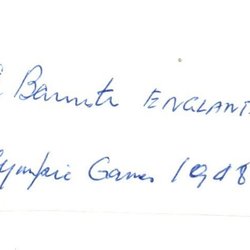 Bannister ENGLAND
Olympic Games 1948